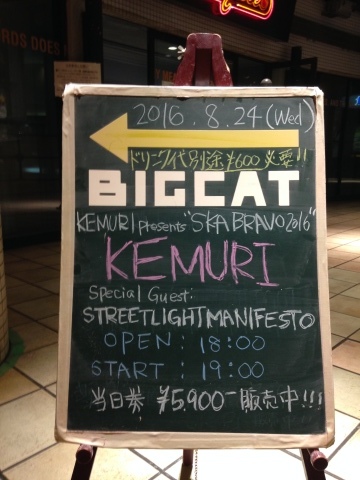 2016.8.24(Wed)
ドリンク代別途¥600必要!!
BIGCAT
KEMURI presents "SKA BRAVO 2016"
KEMURI
Special Guest:
STREETLIGHT MANIFESTO
OPEN: 18:00
START: 19:00
当日券 ¥5,900-販売中!!!